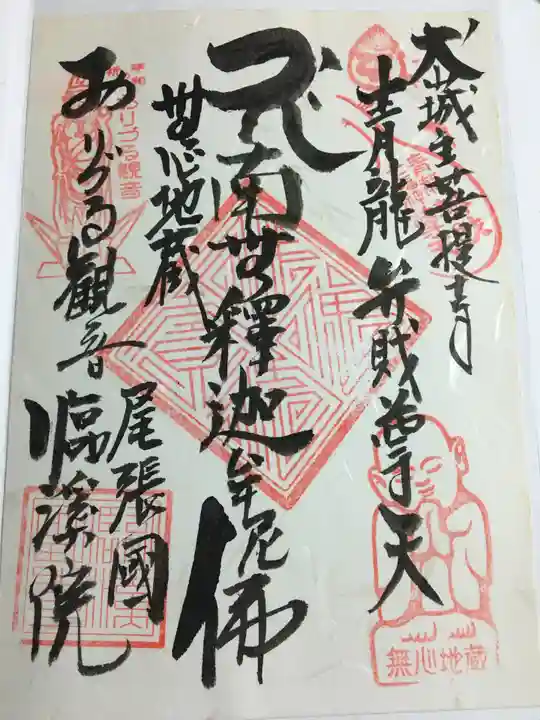 犬山城主菩提寺
青龍弁財尊天
南無釋迦牟尼佛
無心地蔵
おりづる観音
尾張國
臨溪院
おりづる観音
無心地蔵